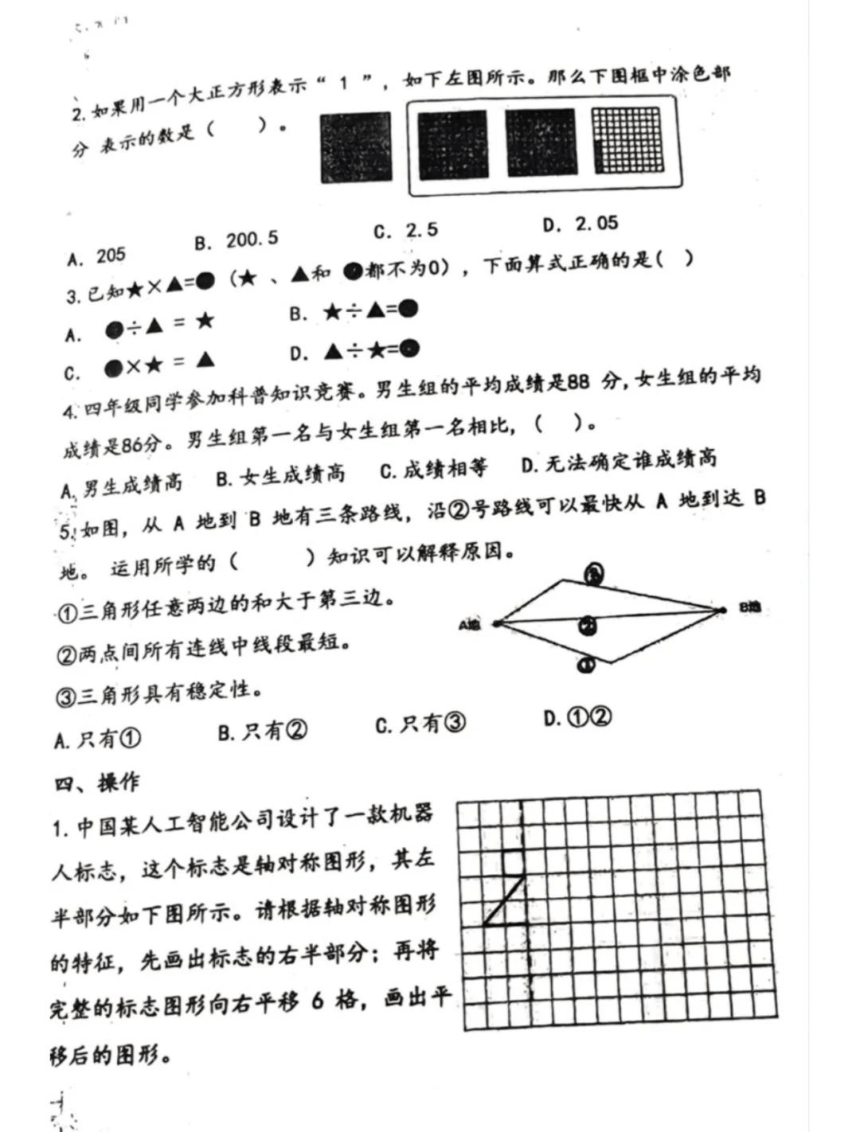 2.如果用一个大正方形表示“ 1 ”，如下左图所示。那么下图框中涂色部
分 表示的数是（ ）。
A. 205 B. 200.5 C. 2.5 D. 2.05
3.已知★×▲=●（★ 、▲和 ●都不为0），下面算式正确的是( )
A. ●÷▲ = ★ B. ★÷▲=●
C. ●×★ = ▲ D. ▲÷★=●
4.四年级同学参加科普知识竞赛。男生组的平均成绩是88 分,女生组的平均
成绩是86分。男生组第一名与女生组第一名相比,（ ）。
A.男生成绩高 B.女生成绩高 C.成绩相等 D.无法确定谁成绩高
5.如图，从 A 地到 B 地有三条路线，沿②号路线可以最快从 A 地到达 B
地。 运用所学的（ ）知识可以解释原因。
①三角形任意两边的和大于第三边。
②两点间所有连线中线段最短。
③三角形具有稳定性。
③
A地
②
B地
①
A.只有① B.只有② C.只有③ D.①②
四、操作
1.中国某人工智能公司设计了一款机器
人标志，这个标志是轴对称图形，其左
半部分如下图所示。请根据轴对称图形
的特征，先画出标志的右半部分；再将
完整的标志图形向右平移 6 格，画出平
移后的图形。